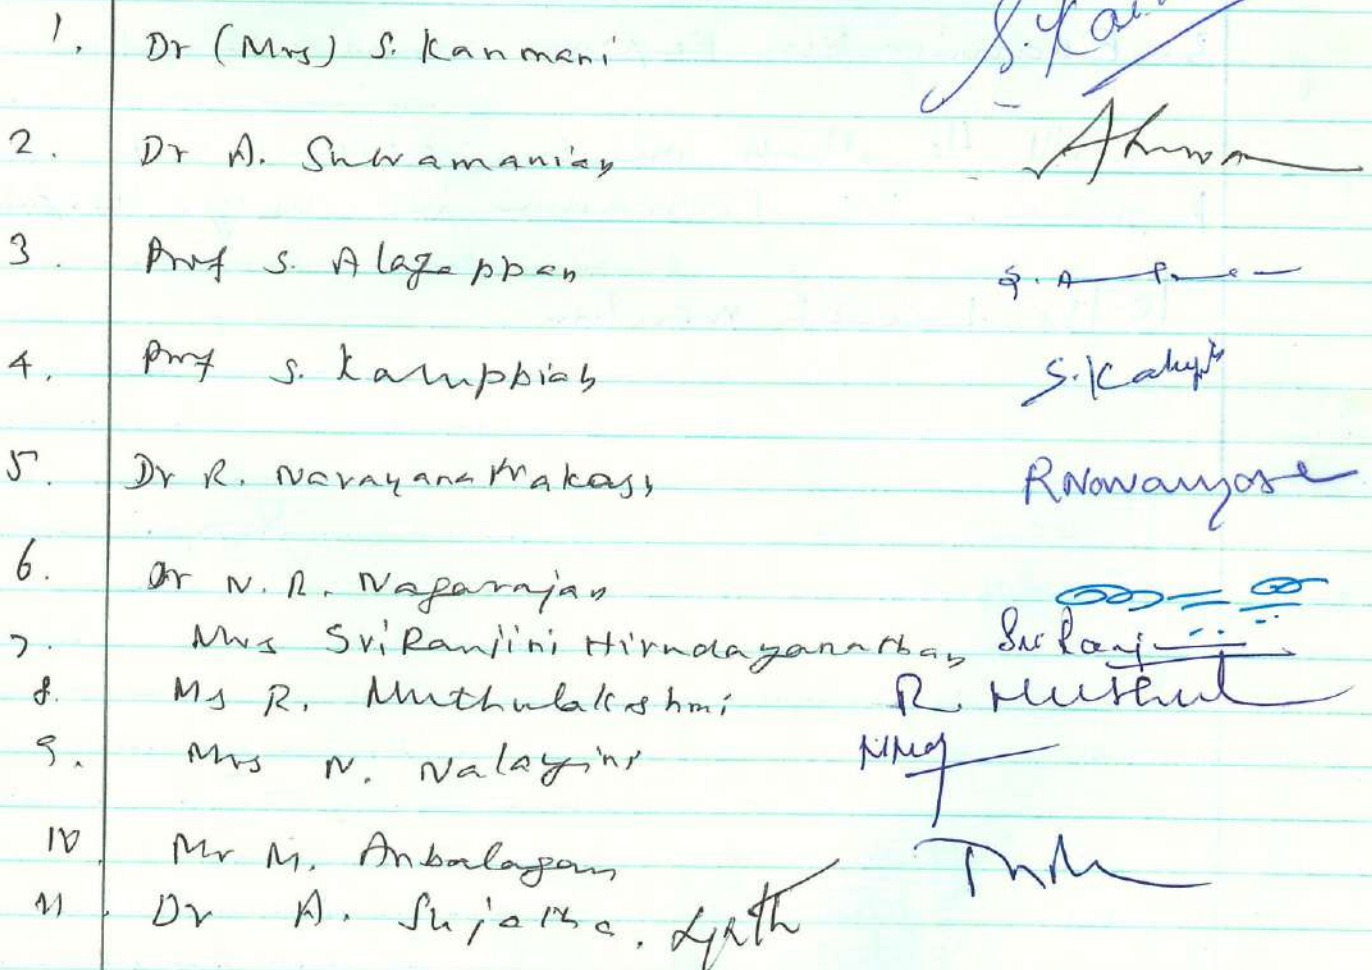 1. Dr (Mrs) S. Kanmani S. Kan
2. Dr A. Subramanian
3. Prof S. Alagappan
4. Prof S. Karuppiah S.
5. Dr R. Narayana Prakash
6. Dr N. R. Nagarajan
7. Mrs SriRanjini Hirudayanathan Sri Ranj
8. Ms R. Muthulakshmi R. Muthul
9. Mrs N. Nalayini
10. Mr M. Anbalagan
11. Dr A. Sujatha.